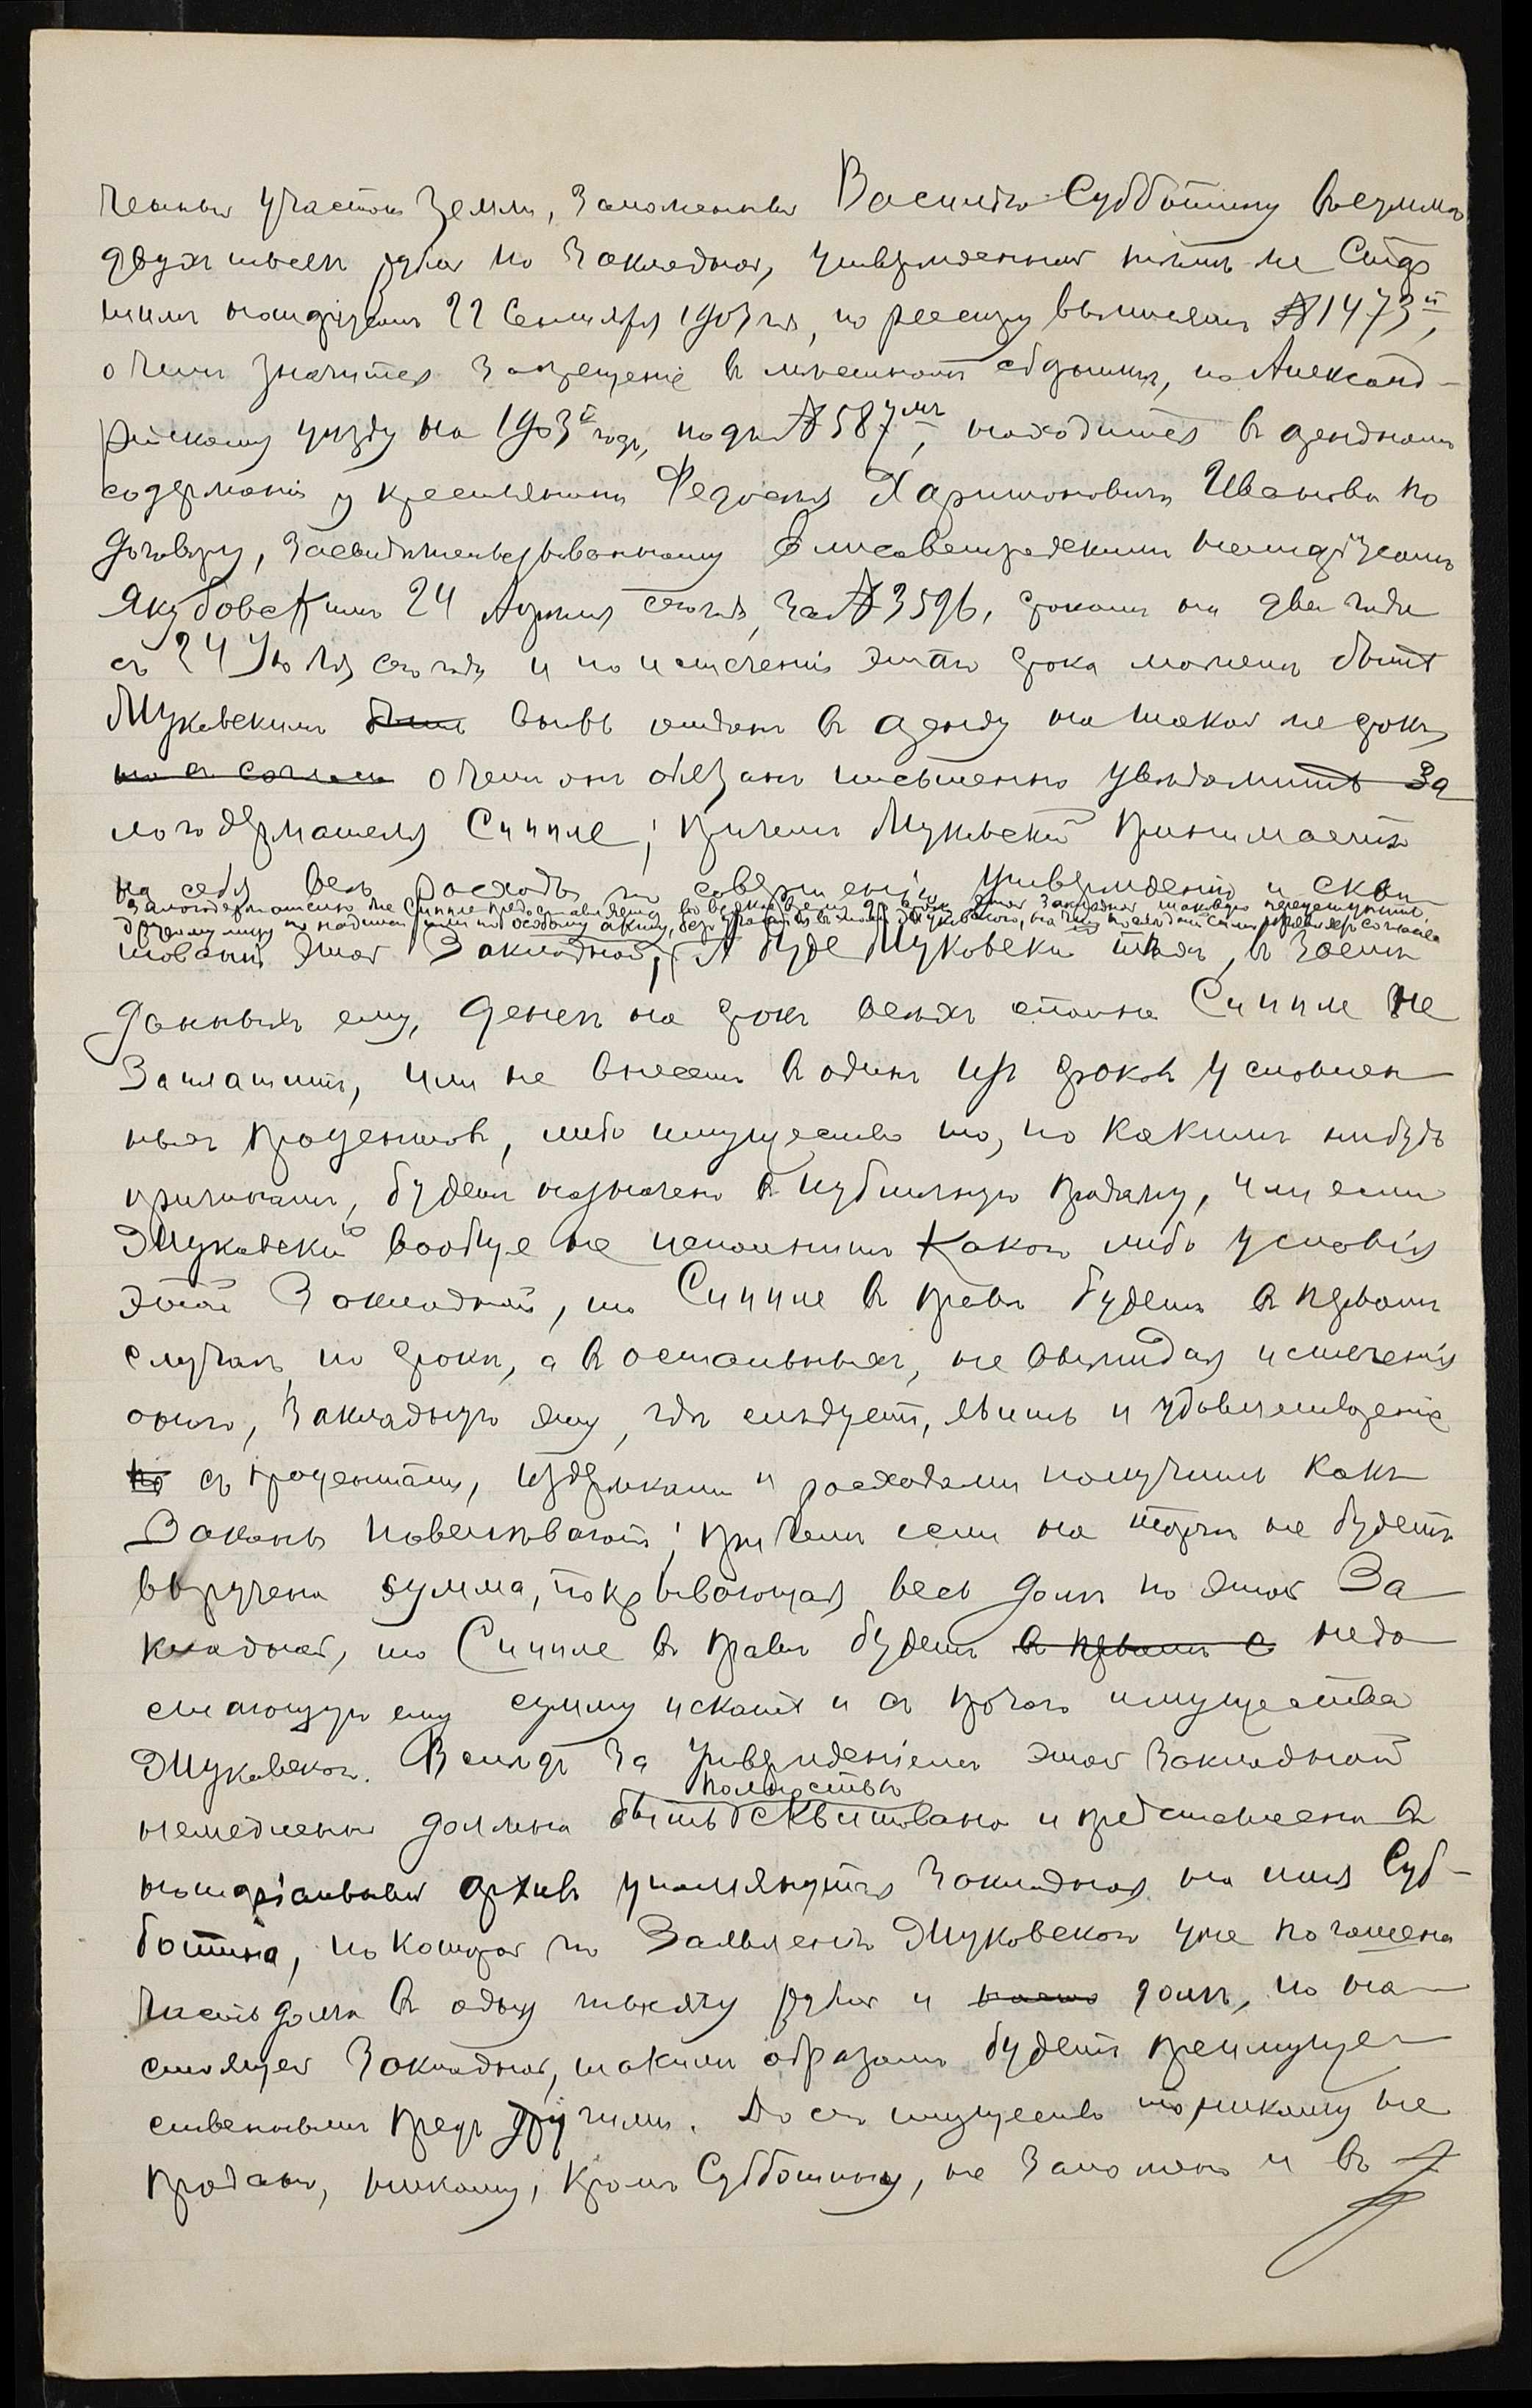 ченный участокъ земли, заложенный Василію Субботину въ суммѣ
двухъ тысячъ рублей по закладной, утвержденной тѣмъ же Стар
шимъ нотаріусомъ 22 Сентября 1903 года, по реестру крѣпостному № 1473й,
о чемъ значится запрещеніе въ мѣстномъ сборникѣ, по Александ-
рійскому уѣзду на 1903й годъ, подъ № 587мъ, находится въ арендномъ
содержаніи у крестьянина Федосія Харитоновича Иванова по
договору, засвидѣтельствованному Елисаветградскимъ нотаріусомъ
Якубовскимъ 24 Апрѣля сего года, за № 3596, срокомъ на два года
съ 24 Іюля сего года и по истеченіи этого срока можетъ быть
Жуковскимъ быть вновь отданъ въ аренду на такой же срокъ,
но съ согласія о чемъ онъ обязанъ письменно увѣдомить За
логодержателя Сиппле; причемъ Жуковскій принимаетъ
на себя всѣ расходы по совершенію утвержденію и скви
Залогодержателю же Сиппле предоставляется во всякое время до срока этой закладной таковую переуступить
другому лицу по надписи или по особому акту, безъ участія въ этомъ Жуковскаго, на что послѣдній симъ изъявляетъ согласіе
тованію этой Закладной; А буде Жуковскій тѣхъ, въ заемъ
данныхъ ему, денегъ на срокъ всѣхъ сполна Сиппле не
заплатитъ, или не внесетъ въ одинъ изъ сроковъ условлен
ныхъ процентовъ, либо имущество то, по какимъ нибудь
причинамъ, будетъ назначено въ публичную продажу, или если
Жуковскій вообще не исполнитъ какого либо условія
этой Закладной, то Сиппле въ правѣ будетъ въ первомъ
случаѣ по срокѣ, а въ остальныхъ, не выжидая истеченія
онаго, закладную эту, гдѣ слѣдуетъ, явить и удовлетвореніе
по съ процентами, издержками и расходами получить какъ
Законъ повелѣваетъ; причемъ если на торгахъ не будетъ
выручена сумма, покрывающая весь долгъ по этой За
кладной, то Сиппле въ правѣ будетъ въ первомъ с недо
стающую ему сумму искать и съ прочаго имущества
Жуковскаго. Вслѣдъ за утвержденіемъ этой закладной
полностью
немедленно должна быть сквитована и представлена въ
нотаріальный архивъ упомянутая закладная на имя Суб-
ботина, по которой по заявленію Жуковскаго уже погашена
часть долга въ одну тысячу рублей и долгъ, по на
стоящей закладной, такимъ образомъ будетъ преимуще-
ственнымъ предъ другими. До сего имущество то никому не
продано, никому, кромѣ Субботина, не заложено и въ